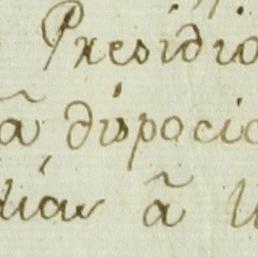 Presidio
ã dispocic
diar ã